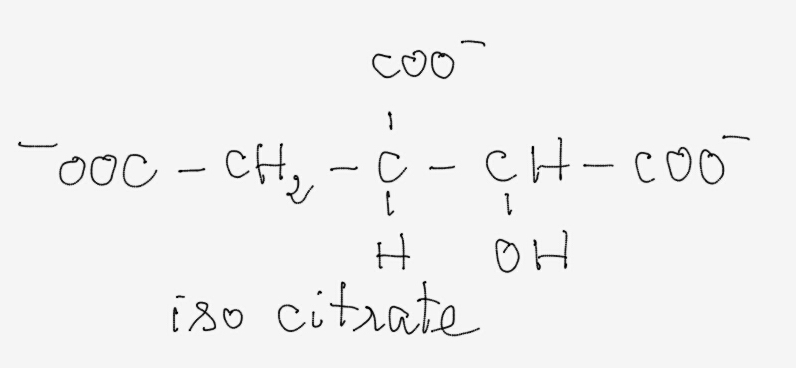 COO⁻
⁻OOC - CH₂ - C - CH - COO⁻
H OH
iso citrate